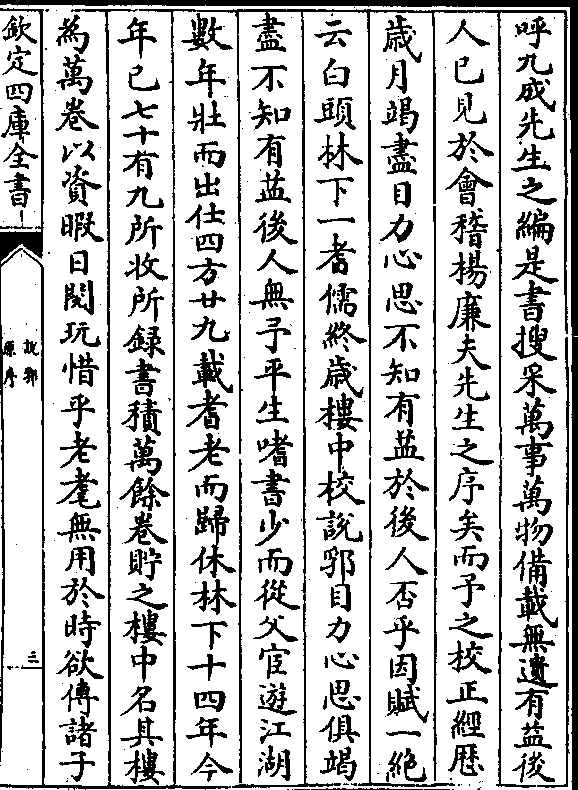 呼九成先生之編是書搜采萬事萬物備載無遺有益後
人已見於會稽楊廉夫先生之序矣而予之校正經歷
歳月竭盡目力心思不知有益於後人否乎因賦一絶
云白頭林下一耆儒終歳樓中校説郛目力心思俱竭
盡不知有益後人無予平生嗜書少而從父宦遊江湖
數年壯而出仕四方廿九載耆老而歸休林下十四年今
年已七十有九所收所録書積萬餘卷貯之樓中名其樓
為萬卷以資暇日閱玩惜乎老耄無用於時欲傳諸子
欽定四庫全書
説郛
原序
三